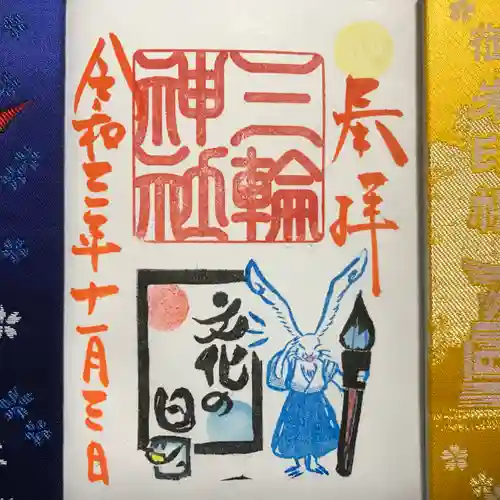 奉拝
三輪
神社
令和三年十一月三日
文化の
日